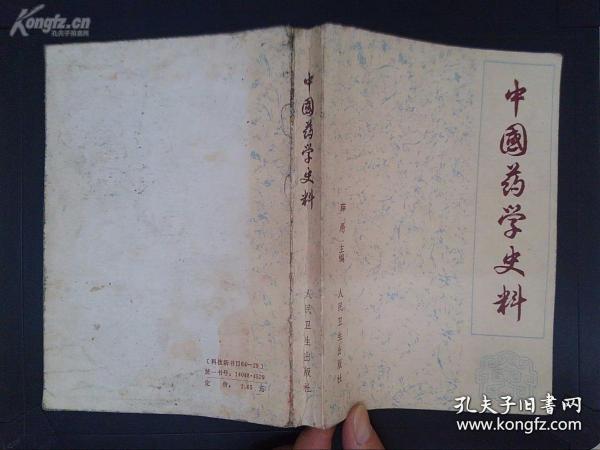 Kongfz.cn
孔夫子旧书网
中國药学史料
薛愚 主编
人民卫生出版社
中國药学史料
人民卫生出版社
〔科技新书目84—29〕
统一书号：14048·4529
定价： 2.65 元
孔夫子旧书网
www.kongfz.com